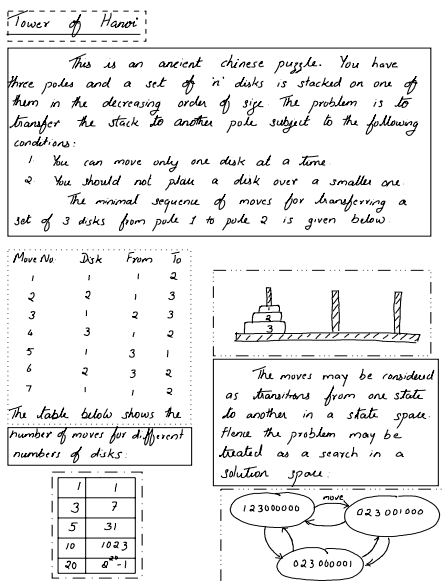 Tower of Hanoi
This is an ancient chinese puzzle. You have
three poles and a set of 'n' disks is stacked on one of
them in the decreasing order of size. The problem is to
transfer the stack to another pole subject to the following
conditions:
1. You can move only one disk at a time.
2. You should not place a disk over a smaller one.
The minimal sequence of moves for transferring a
set of 3 disks from pole 1 to pole 2 is given below
Move No. Disk From To
1 1 1 2
2 2 1 3
3 1 2 3
4 3 1 2
5 1 3 1
6 2 3 2
7 1 1 2
The table below shows the
number of moves for different
numbers of disks:
1 1
3 7
5 31
10 1023
20 2^20-1
1
2
3
The moves may be considered
as transitions from one state
to another in a state space.
Hence the problem may be
treated as a search in a
solution space:
move
123000000
023001000
023000001